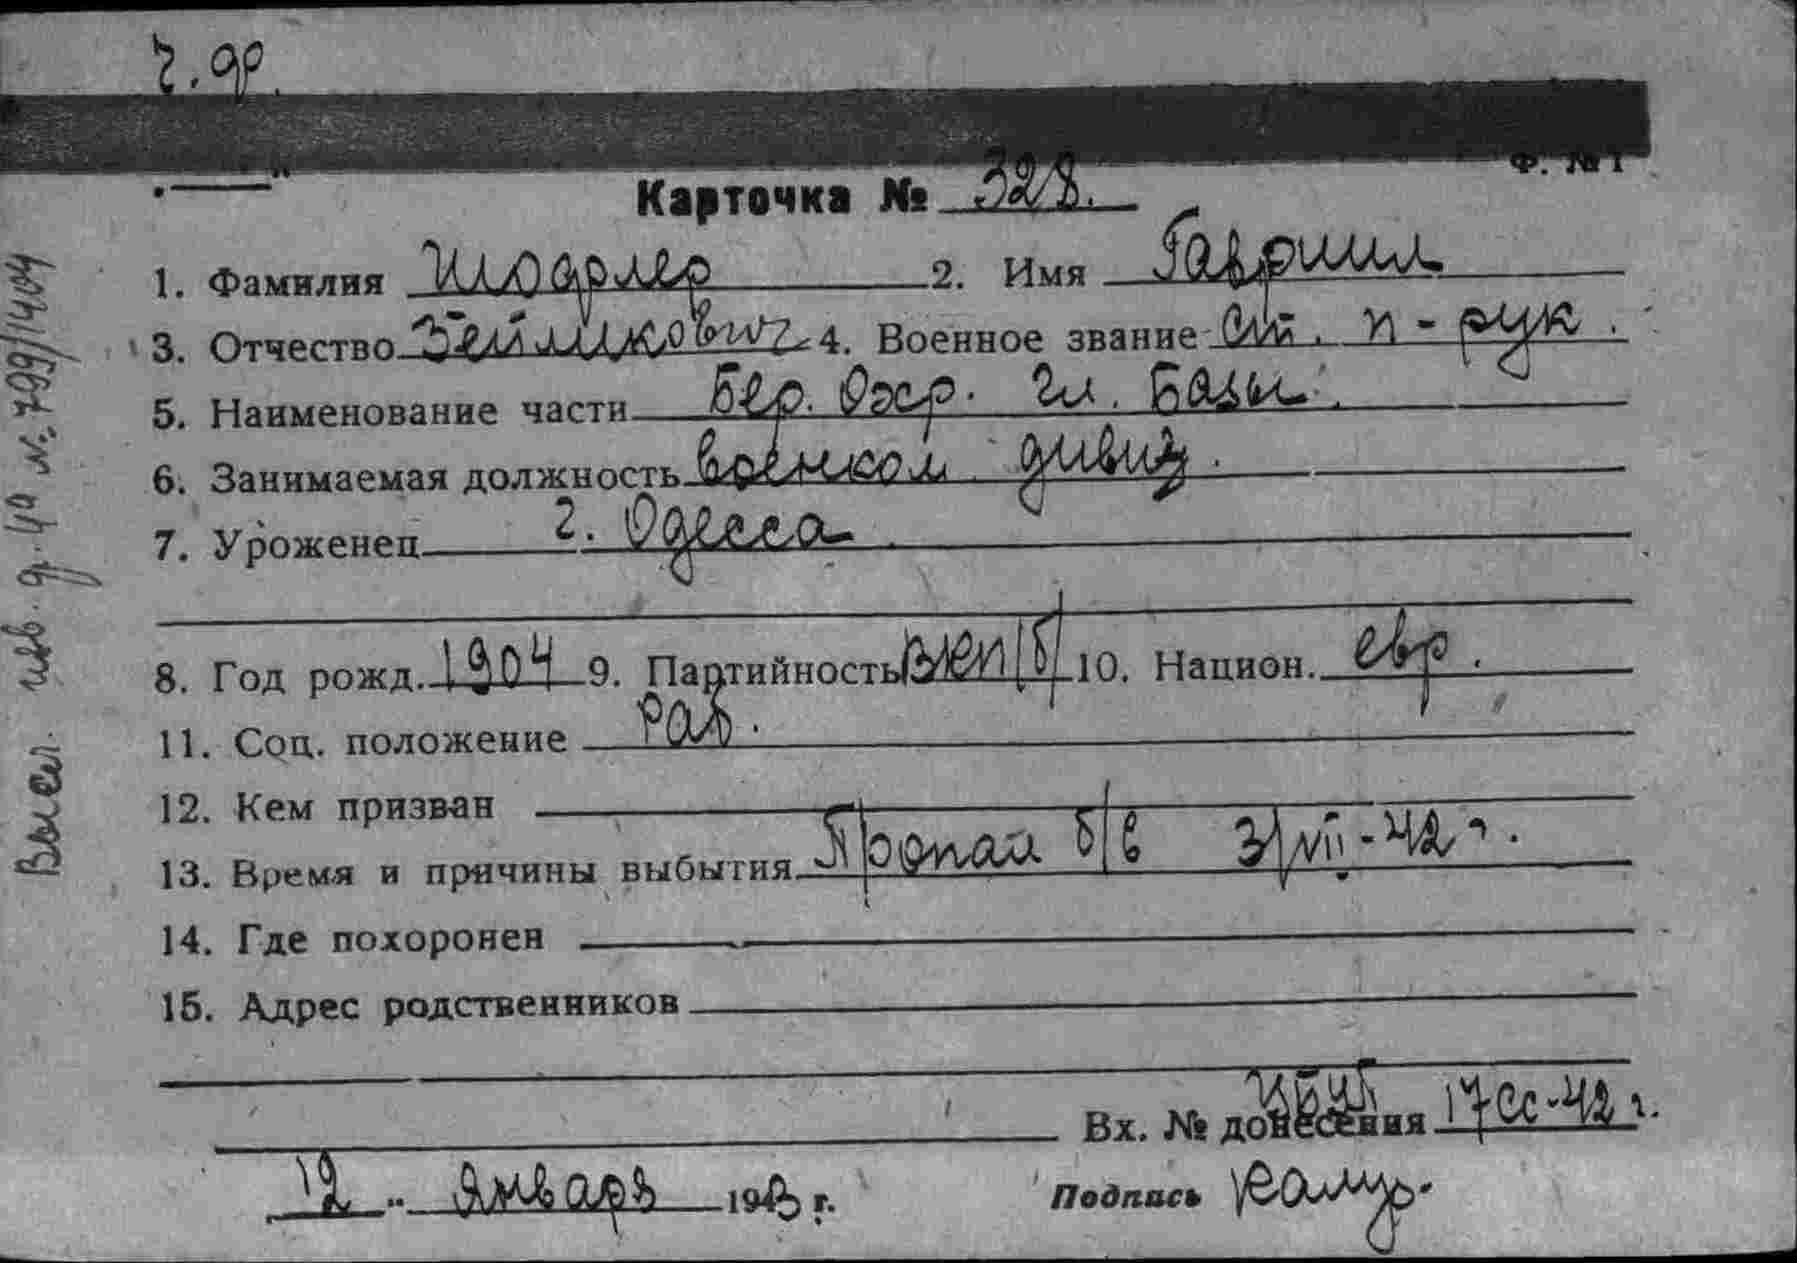 ч. ф.
Ф. № 1
Карточка № 328.
1. Фамилия Шодрлер 2. Имя Гавриил
3. Отчество Зейликович 4. Военное звание Ст. п-рук.
5. Наименование части Бер. Охр. Гл. Базы.
6. Занимаемая должность военком дивиз.
7. Уроженец г. Одесса
8. Год рожд. 1904 9. Партийность ВКП/б/ 10. Национ. евр.
11. Соц. положение Раб.
12. Кем призван
13. Время и причины выбытия Пропал б/в 3/VII-42 г.
14. Где похоронен
15. Адрес родственников
Вх. № донесения 17сс-42 г.
12 " января 1943 г. Подпись
Высл. изв. ф. 4а №: 799/1404